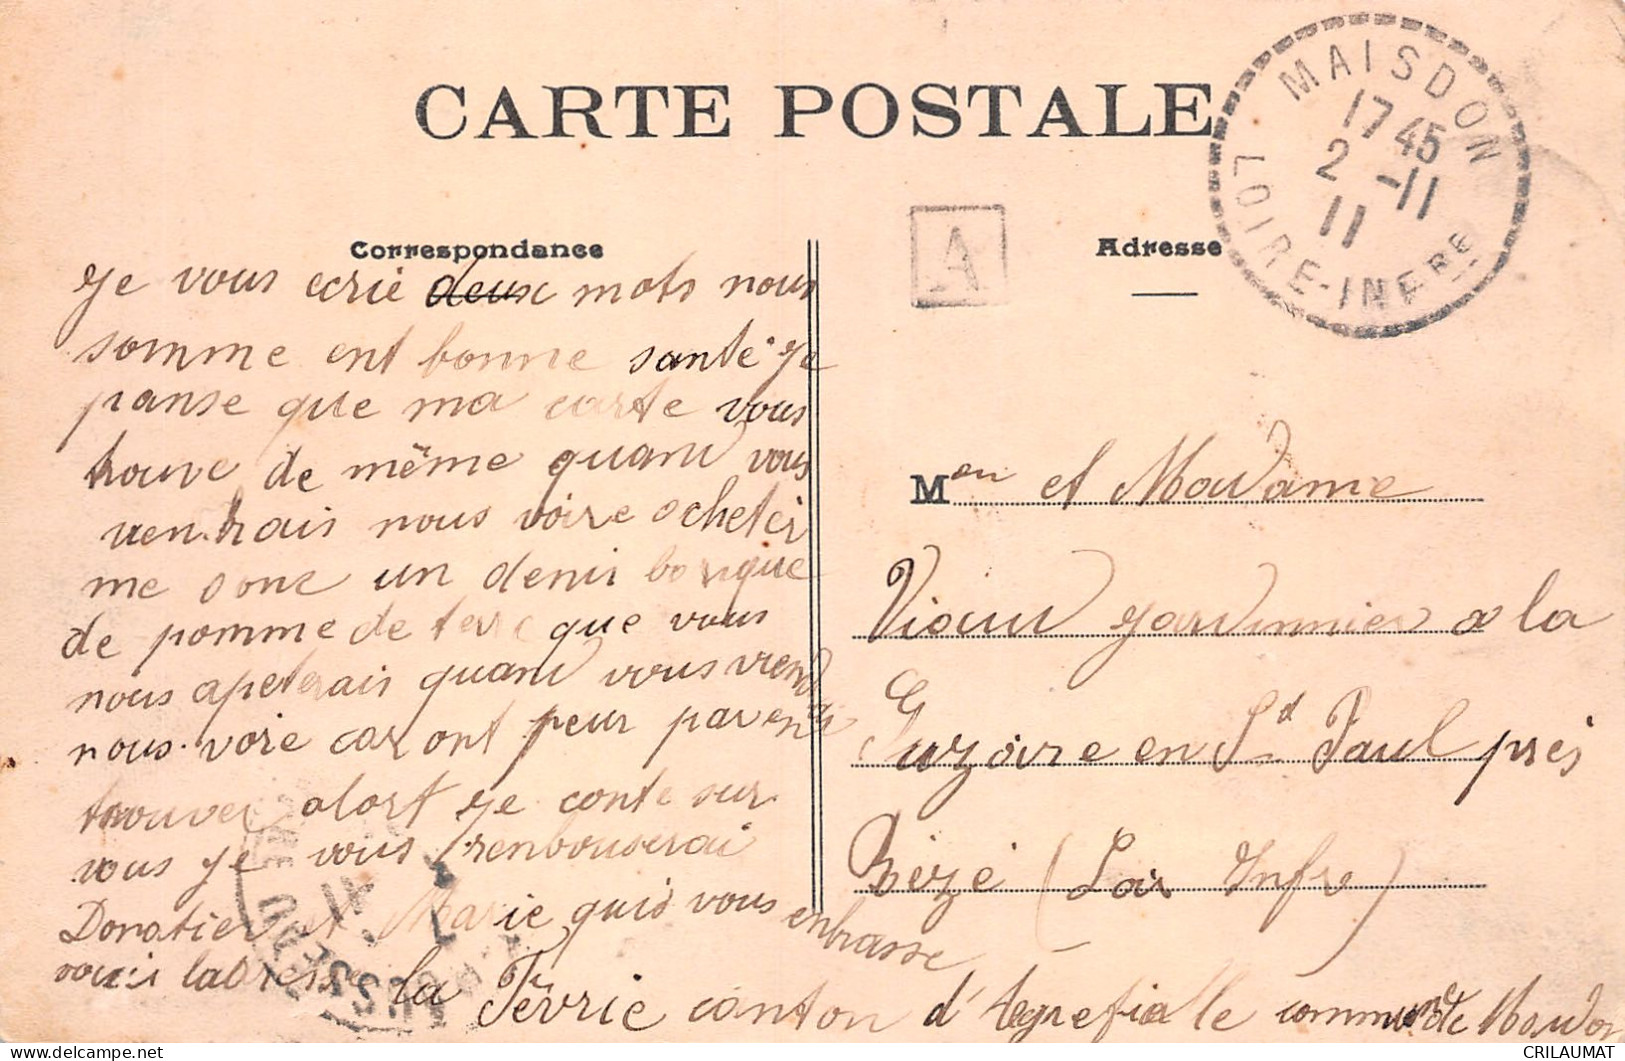 CARTE POSTALE
MAISDON
17 45
2 -11
11
LOIRE-INFRE
A
Correspondance
Adresse
ye vous ecrie deux mots nous
somme ent bonne santé ye
panse que ma carte vous
trouve de même quand vous
vendrais nous voire acheter
me donc un demi barique
de pomme de terre que vous
nous apeterais quand vous viendrais
nous voire car ont peur paren
trouver alort ye conte sur
vous ye vous renbouserai
Donatien et Marie qui vous enbrasse
voici ladresse la Févrie canton d'Aegrefielle commune de Maidon
Mon et Madame
Viaud jardinnier a la
en St Paul près
Rézé (Loir Infre)
CRILAUMAT